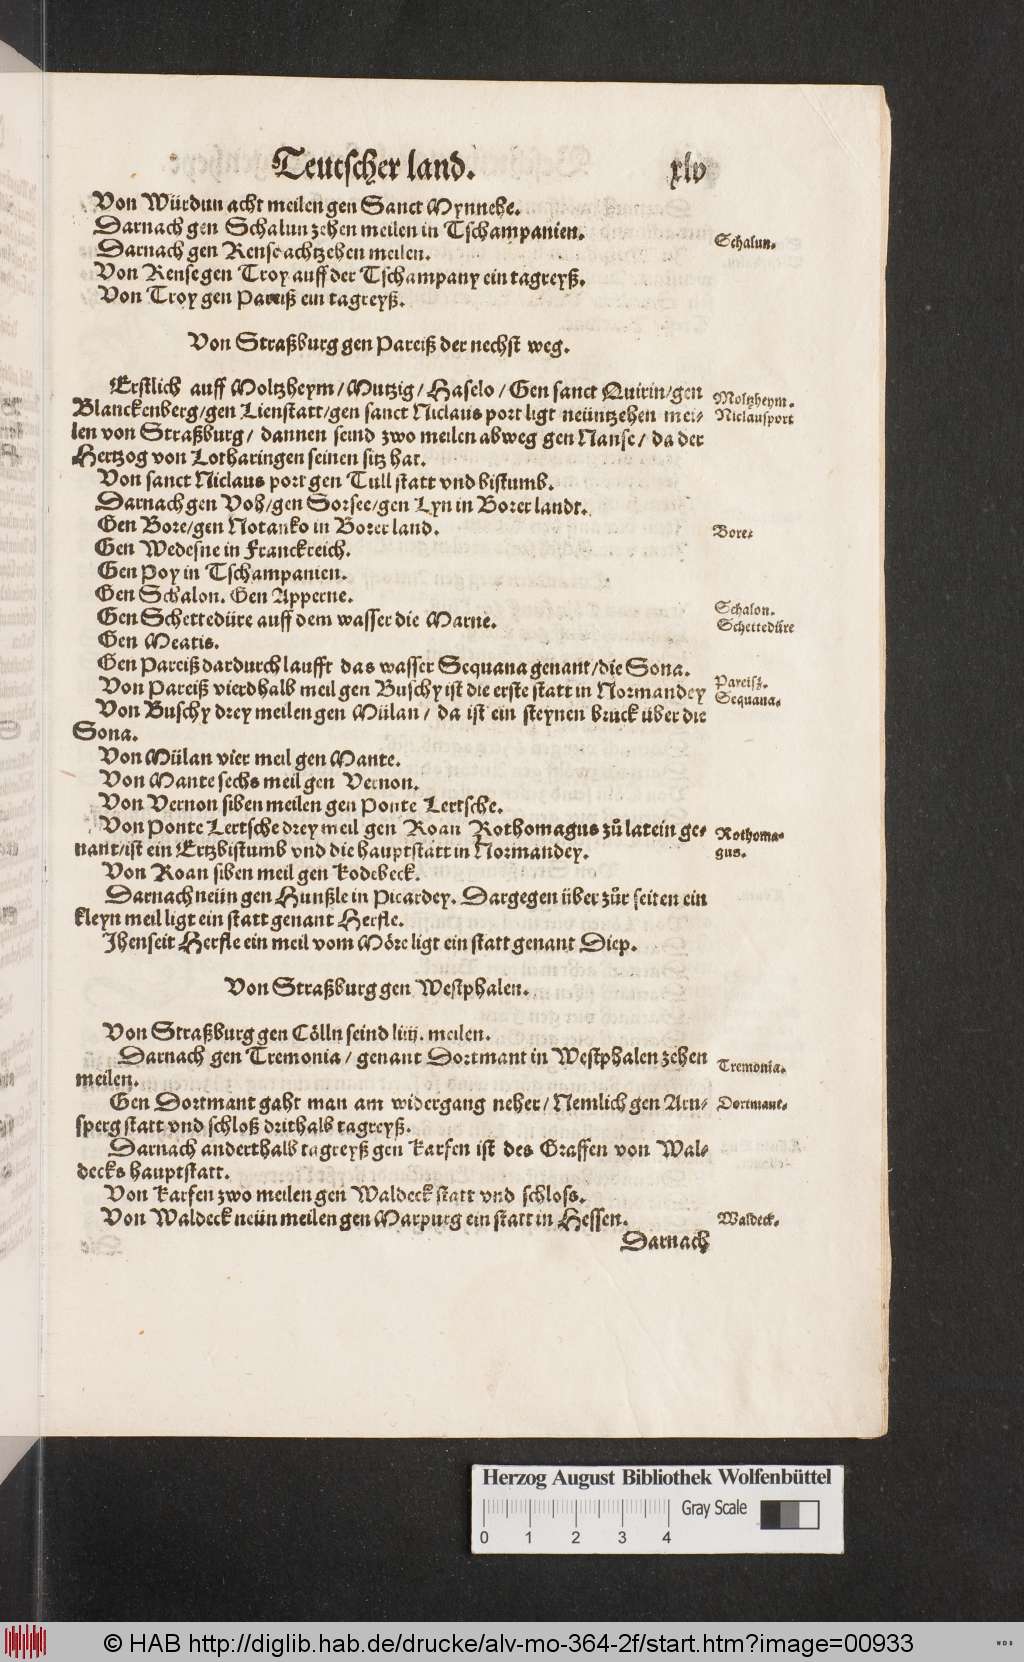 Teutscher land. xlv
Von Würdun acht meilen gen Sanct Mynnehe.
Darnach gen Schalun zehen meilen in Tschampanien.
Schalun.
Darnach gen Rense achtzehen meilen.
Von Rense gen Troy auff der Tschampany ein tagreyß.
Von Troy gen Pareiß ein tagreyß.
Von Straßburg gen Pareiß der nechst weg.
Erstlich auff Moltzheym/Mutzig/Haselo/Gen sanct Quirin/gen
Moltzheym.
Blanckenberg/gen Lienstatt/gen sanct Niclaus port ligt neüntzehen mei-
Niclausport
len von Straßburg/ dannen seind zwo meilen abweg gen Nanse/ da der
Hertzog von Lotharingen seinen sitz hat.
Von sanct Niclaus port gen Tull statt vnd bistumb.
Darnach gen Voh/gen Sorsee/gen Lyn in Borer landt.
Gen Bore/gen Notanko in Borer land.
Bore.
Gen Wedesne in Franckreich.
Gen Poy in Tschampanien.
Gen Schalon. Gen Apperne.
Schalon.
Gen Schettedüre auff dem wasser die Marne.
Schettedüre
Gen Meatis.
Gen Pareiß dardurch laufft das wasser Sequana genant/die Sona.
Pareisz.
Von Pareiß vierdhalb meil gen Buschy ist die erste statt in Normandey
Sequana.
Von Buschy drey meilen gen Mülan/ da ist ein steynen bruck über die
Sona.
Von Mülan vier meil gen Mante.
Von Mante sechs meil gen Vernon.
Von Vernon siben meilen gen Ponte Lertsche.
Von Ponte Lertsche drey meil gen Roan Rothomagus zů latein ge-
Rothoma-
nant/ist ein Ertzbistumb vnd die hauptstatt in Normandey.
gus.
Von Roan siben meil gen Kodebeck.
Darnach neün gen Hunßle in Picardey. Dargegen über zůr seiten ein
kleyn meil ligt ein statt genant Herfle.
Jhenseit Herfle ein meil vom Möre ligt ein statt genant Diep.
Von Straßburg gen Westphalen.
Von Straßburg gen Cölln seind liiij. meilen.
Darnach gen Tremonia/ genant Dortmant in Westphalen zehen
Tremonia.
meilen.
Gen Dortmant gaht man am widergang neher/ Nemlich gen Arn-
Dortmant.
sperg statt vnd schloß drithalb tagreyß.
Darnach anderthalb tagreyß gen Karfen ist des Graffen von Wal-
decks hauptstatt.
Von Karfen zwo meilen gen Waldeck statt vnd schloss.
Von Waldeck neün meilen gen Marpurg ein statt in Hessen.
Waldeck.
Darnach
Herzog August Bibliothek Wolfenbüttel
0 1 2 3 4 Gray Scale
© HAB http://diglib.hab.de/drucke/alv-mo-364-2f/start.htm?image=00933